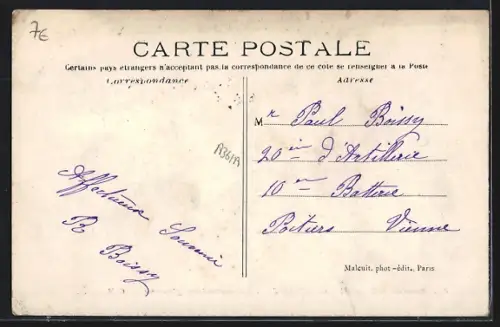 7€
CARTE POSTALE
Certains pays étrangers n'acceptant pas la correspondance de ce côté se renseigner à la Poste
Correspondance
Adresse
Affectueux Souvenir
R Boissy
Mr Paul Boissy
20ième d'Artillerie
10me Batterie
Poitiers Vienne
Malcuit, phot-édit, Paris